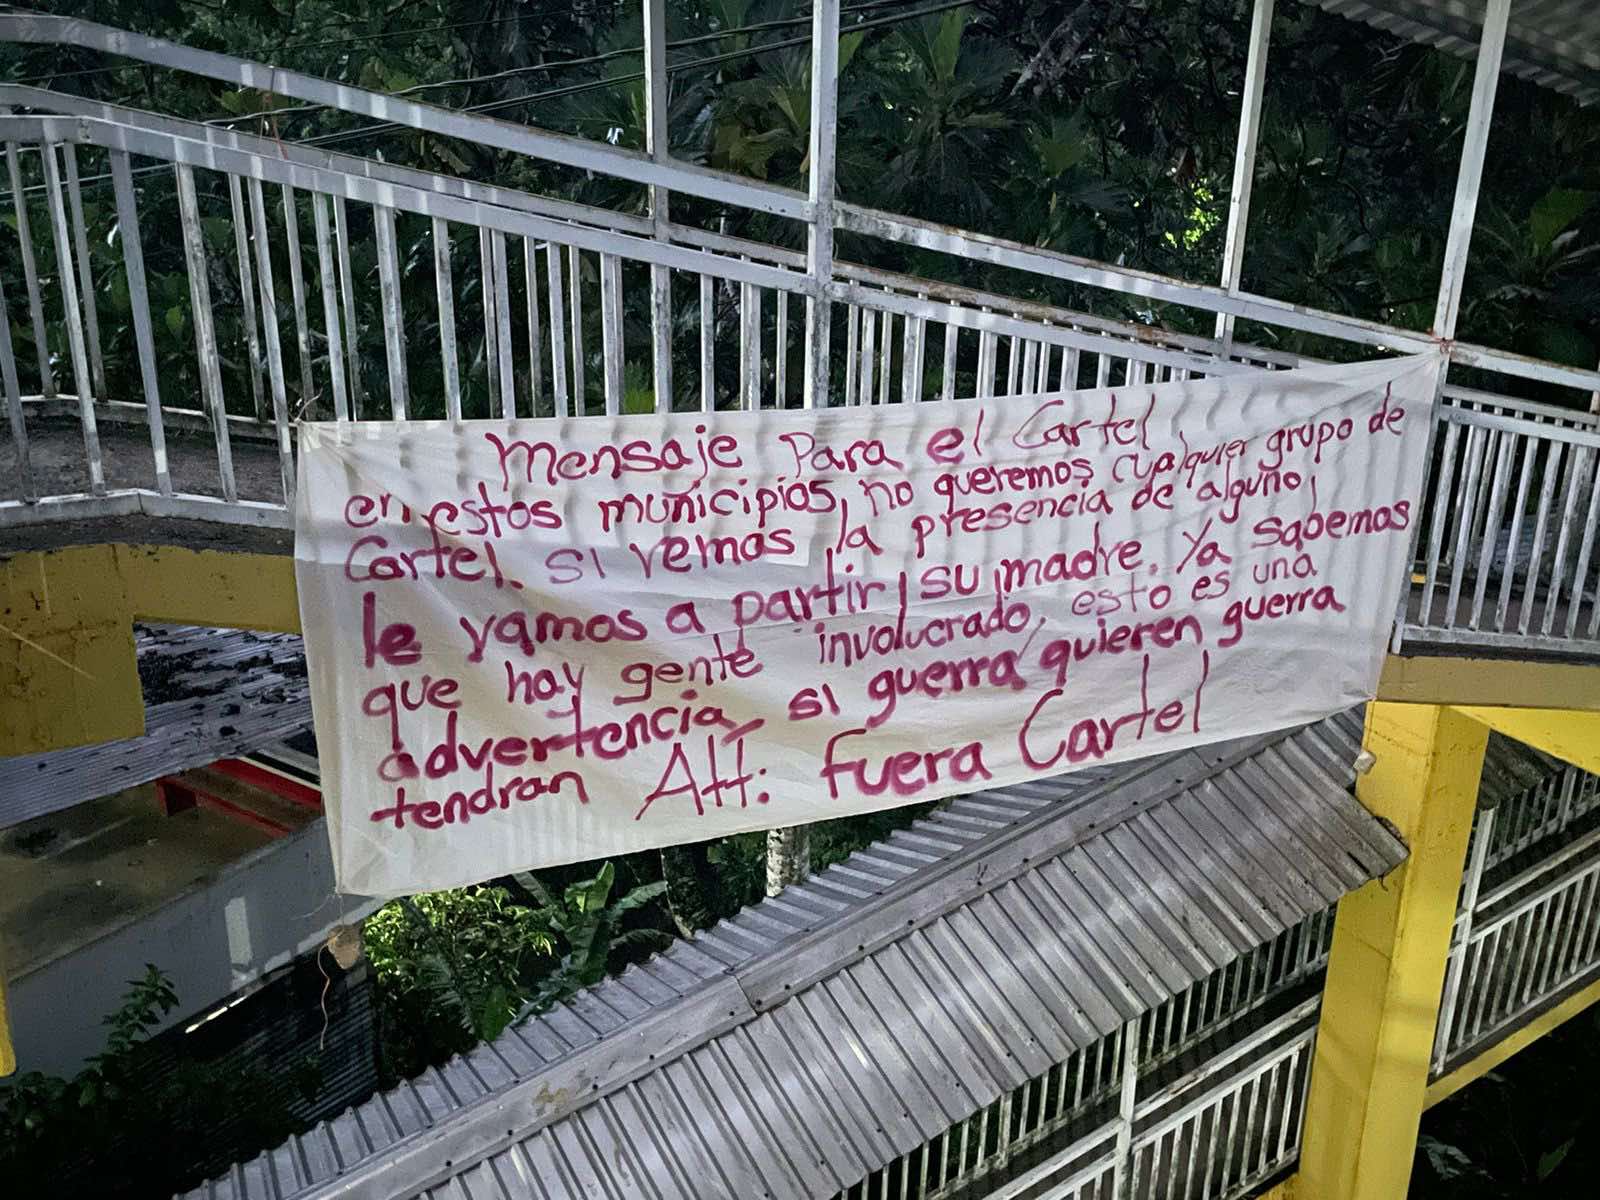 Mensaje Para el Cartel
en estos municipios, no queremos cualquier grupo de
Cartel. si vemos la presencia de alguno,
le vamos a partir su madre. Ya sabemos
que hay gente involucrado, esto es una
advertencia, si guerra quieren guerra
tendran Att: fuera Cartel